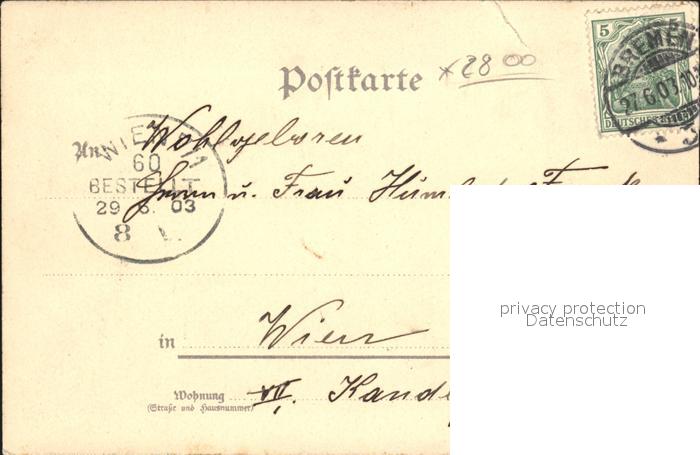 Postkarte
*2800
5
DEUTSCHES REICH
BREMEN
27.6.03.10
An
WIEN
60
BESTELLT
29 6. 03
8 V.
Wohlgeboren
Herrn u. Frau
in Wien
Wohnung VII. Kand
(Straße und Hausnummer)
privacy protection
Datenschutz